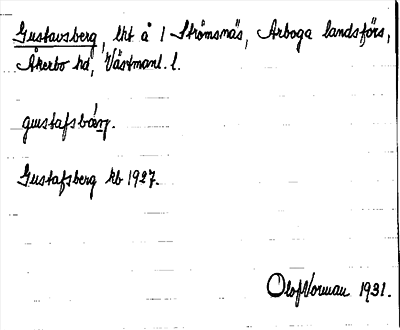 Gustavsberg, lht å 1 Strömsnäs, Arboga landsförs,
Åkerbo hd, Västmanl. l.
gustafsbärj.
Gustafsberg kb 1927.
Olof Norman 1931.